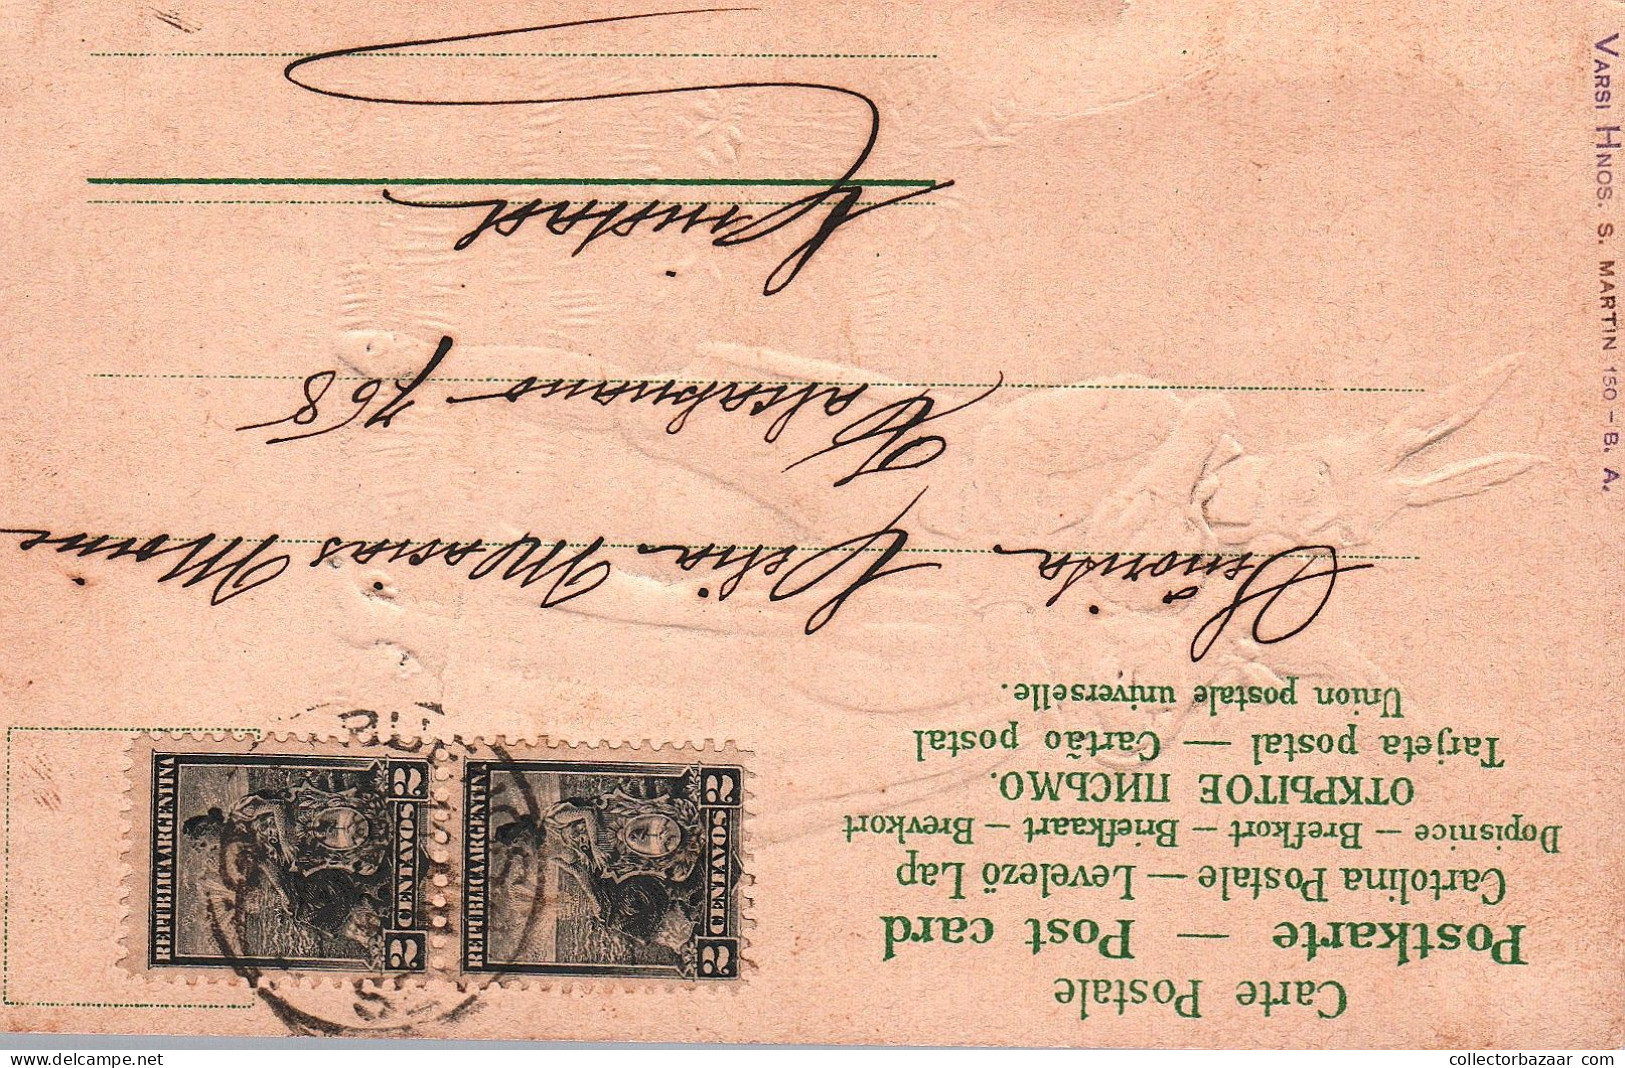 Carte Postale
Postkarte — Post card
Cartolina Postale — Levelező Lap
Dopisnice — Brefkort — Briefkaart — Brevkort
ОТКРЫТОЕ ПИСЬМО.
Tarjeta postal — Cartão postal
Union postale universelle.
REPUBLICA ARGENTINA
2 CENTAVOS 2
REPUBLICA ARGENTINA
2 CENTAVOS 2
Señorita Celia Macias
Talcahuano 768
VARSI HNOS. S. MARTIN 150 - B. A.
collectorbazaar.com